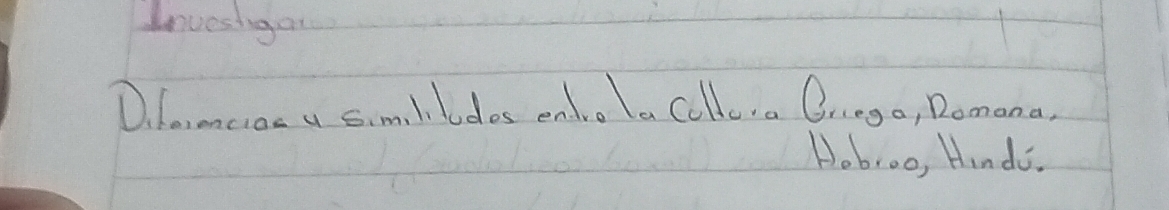 Investigar
Diferencias y similitudes entre la Cultura Griega, Romana,
Hebreo, Hindú.